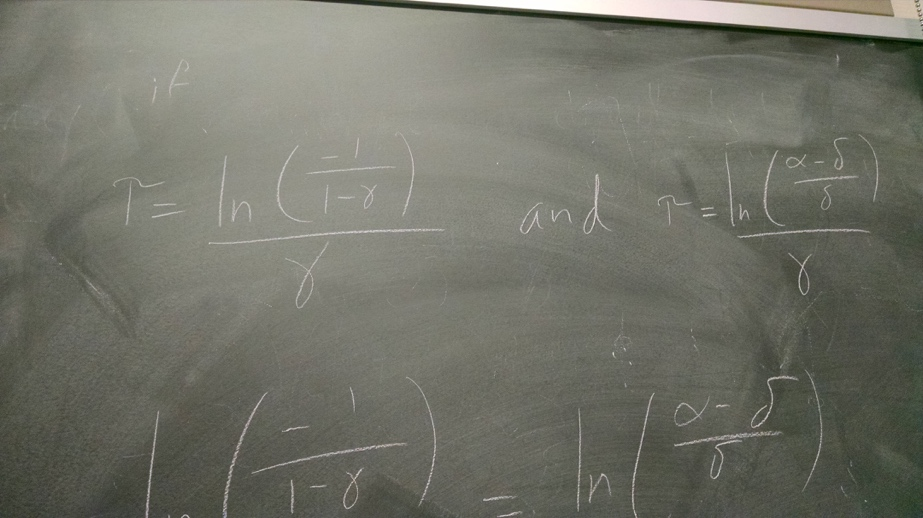 if
T = ln(-1/(1-γ))/γ and T = ln((α-δ)/δ)/γ
ln(-1/(1-γ)) = ln((α-δ)/δ)